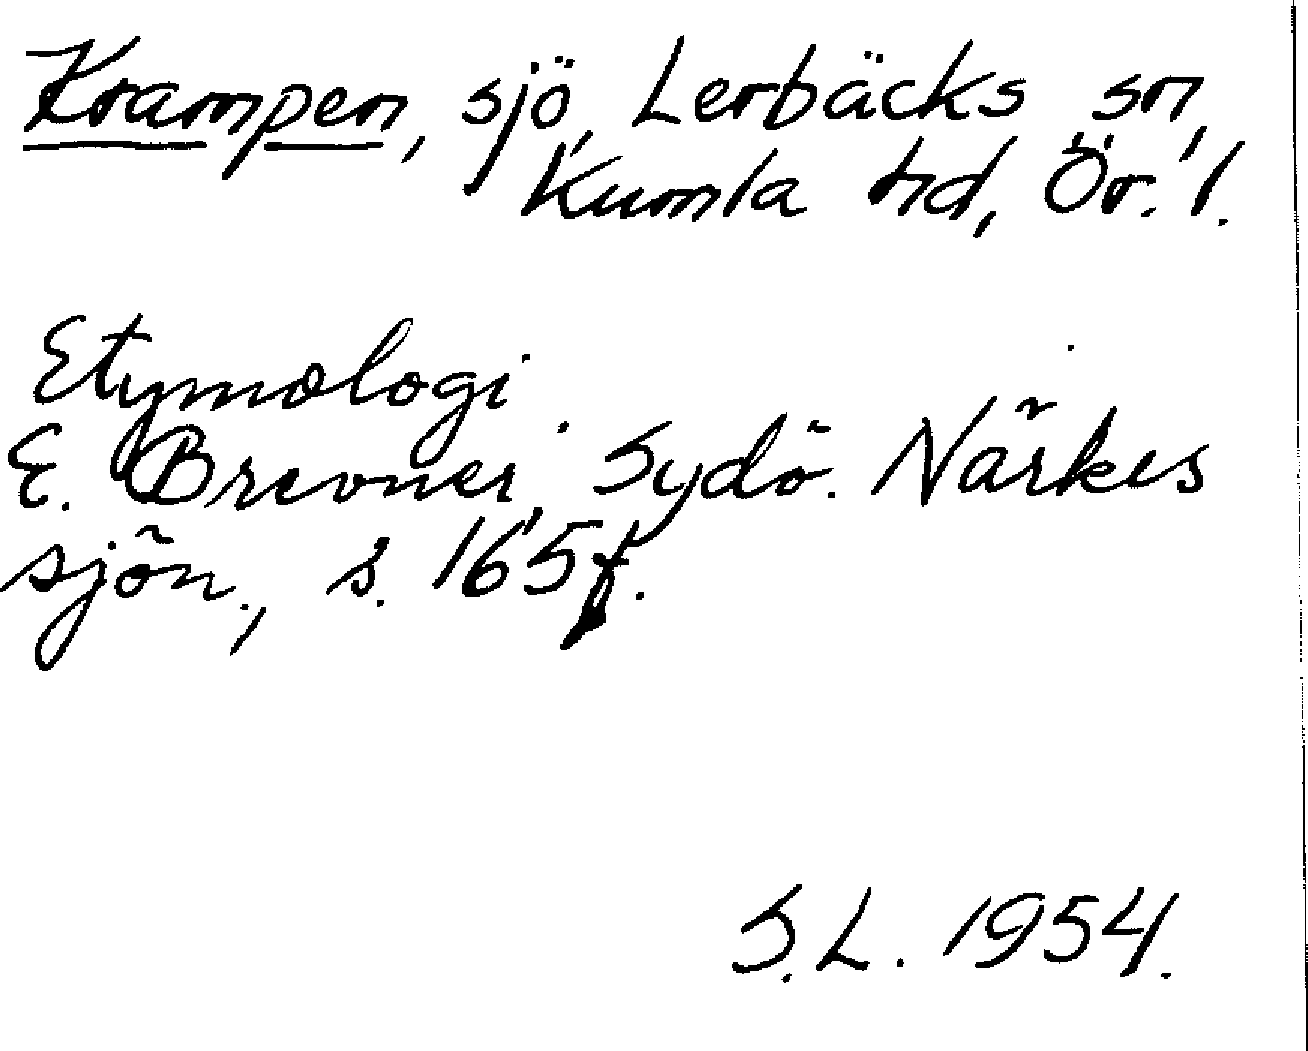 Krampen, sjö, Lerbäcks sn,
Kumla hd, Ör. l.
Etymologi
E. Brevner, Sydö. Närkes
sjön., s. 165 f.
S.L. 1954.